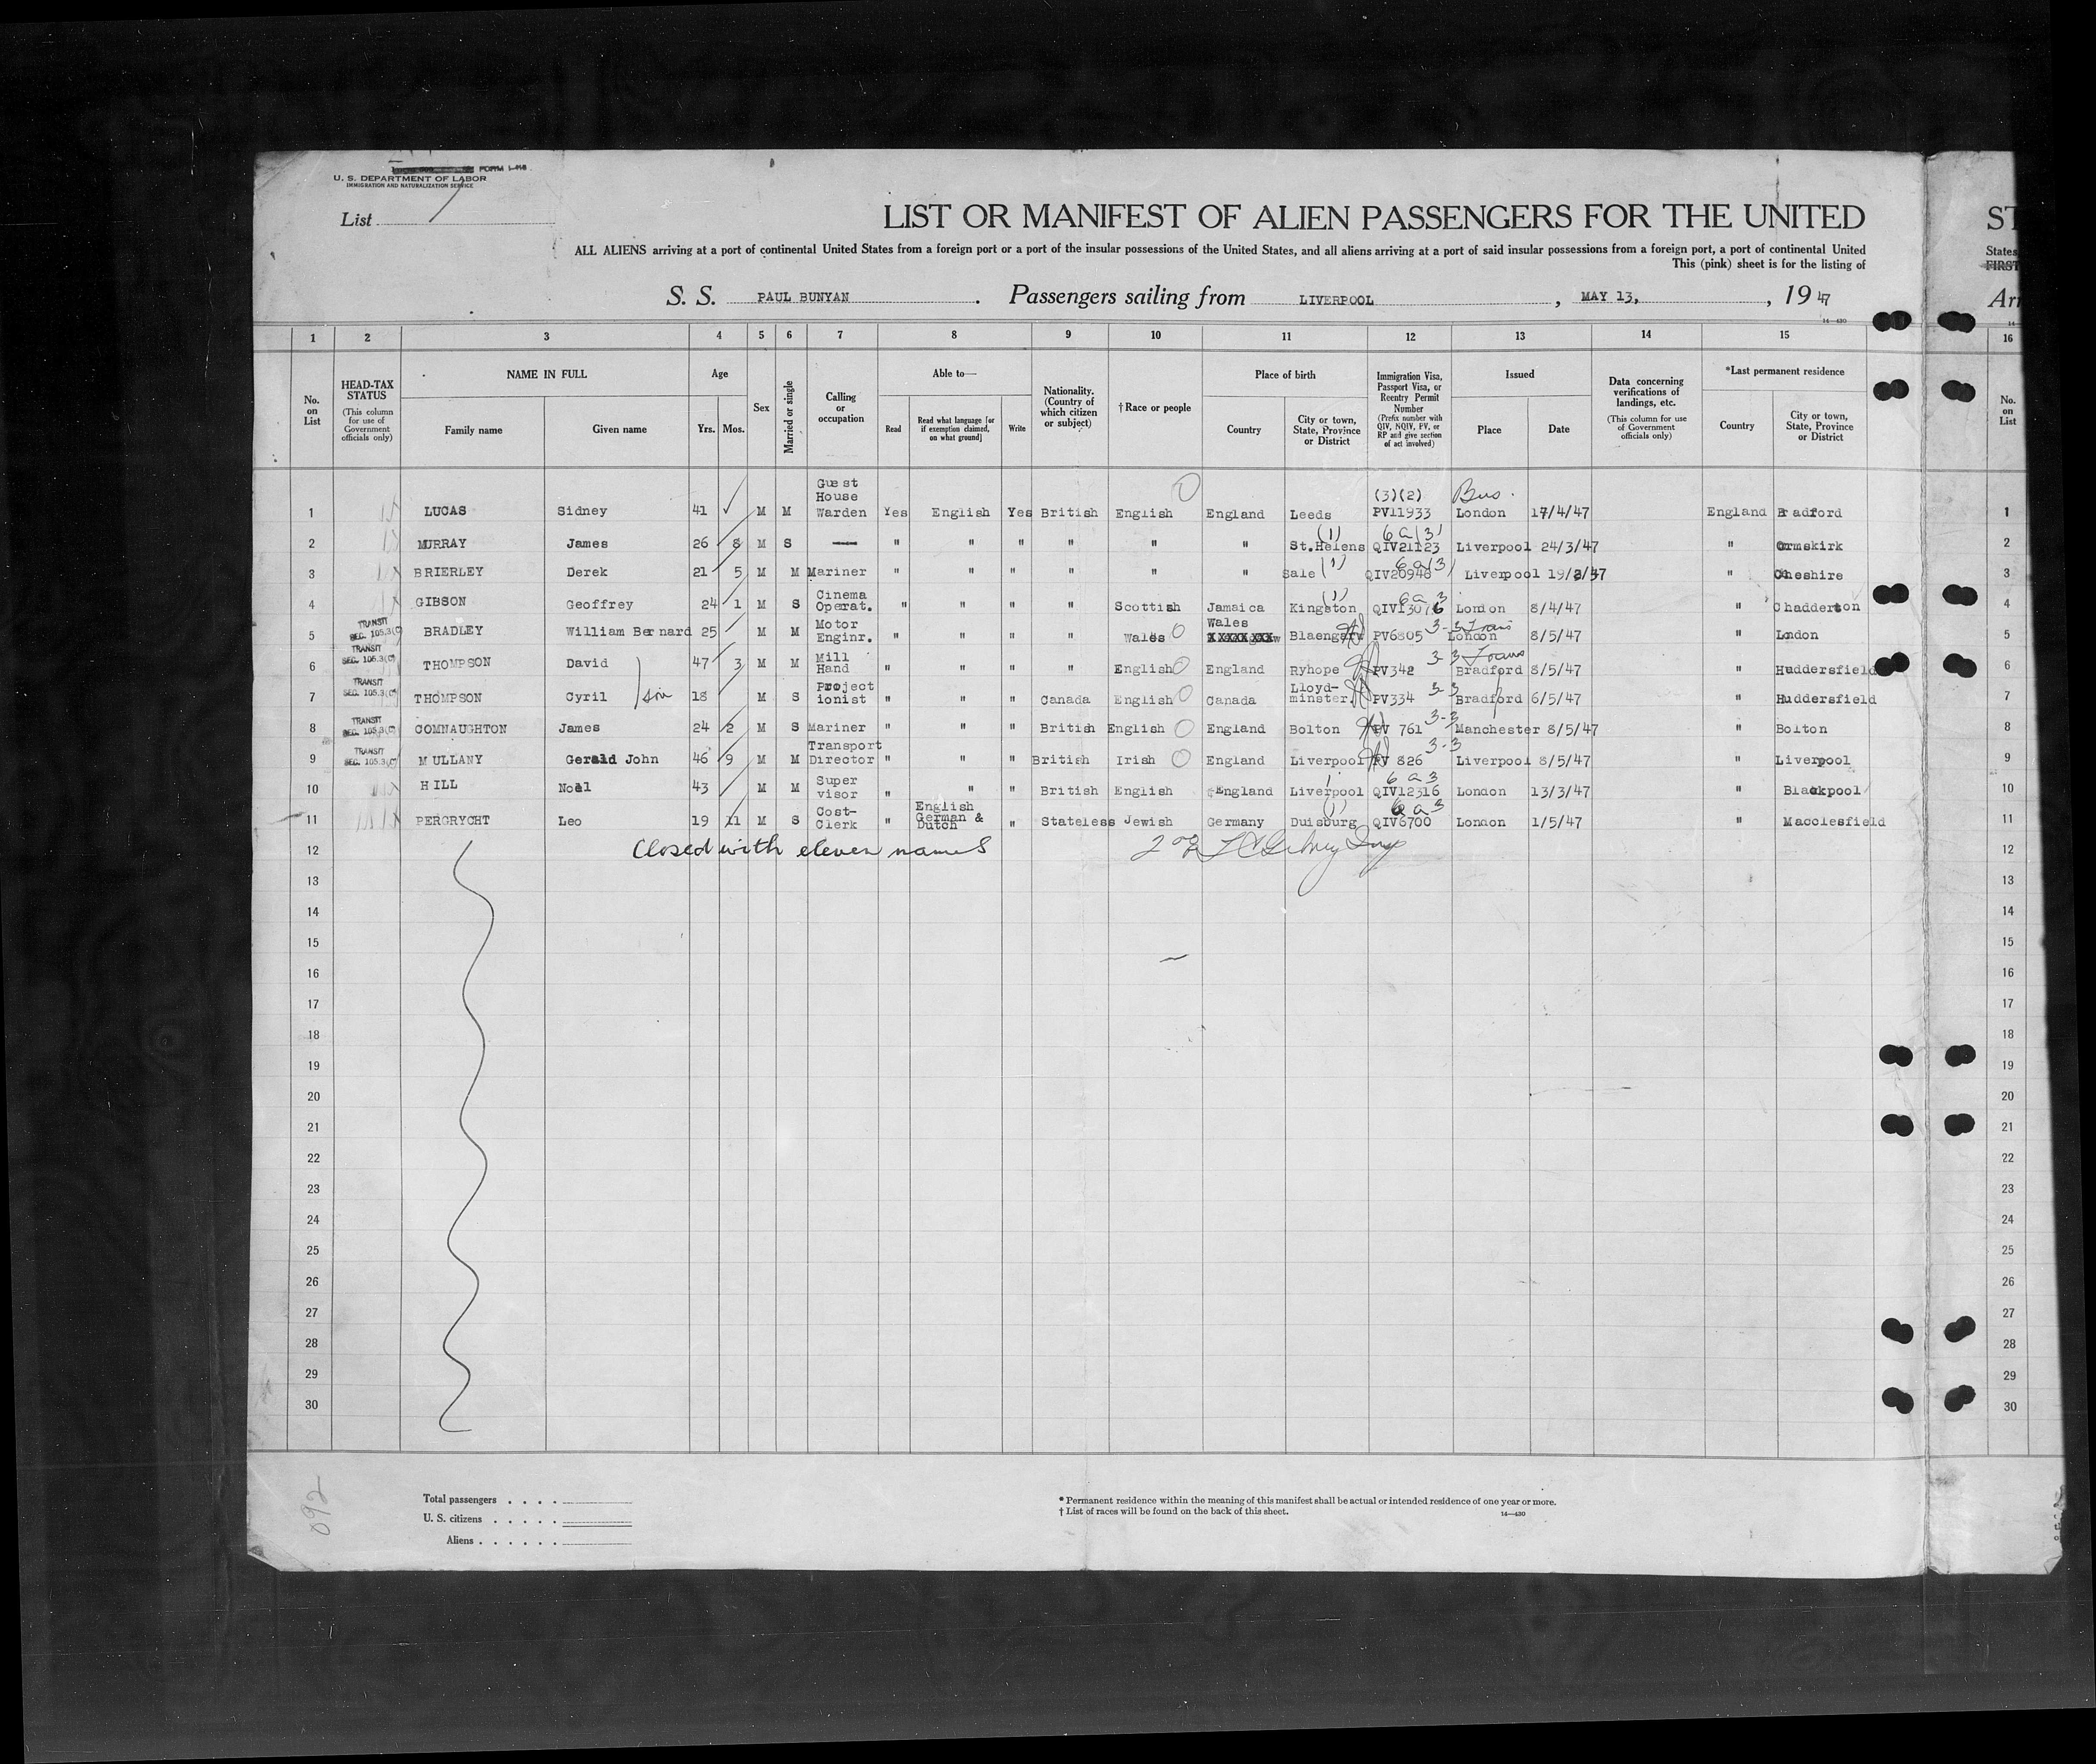 FORM I-415
U. S. DEPARTMENT OF LABOR
IMMIGRATION AND NATURALIZATION SERVICE
List
LIST OR MANIFEST OF ALIEN PASSENGERS FOR THE UNITED
ST
ALL ALIENS arriving at a port of continental United States from a foreign port or a port of the insular possessions of the United States, and all aliens arriving at a port of said insular possessions from a foreign port, a port of continental United
States
This (pink) sheet is for the listing of
FIRST
S. S. PAUL BUNYAN. Passengers sailing from LIVERPOOL, MAY 13, , 19 47
Arr
14—430
1 2 3 4 5 6 7 8 9 10 11 12 13 14 15 16
No. on List
HEAD-TAX STATUS
(This column for use of Government officials only)
NAME IN FULL
Family name
Given name
Age
Yrs. Mos.
Sex
Married or single
Calling or occupation
Able to—
Read
Read what language [or if exemption claimed, on what ground]
Write
Nationality. (Country of which citizen or subject)
† Race or people
Place of birth
Country
City or town, State, Province or District
Immigration Visa, Passport Visa, or Reentry Permit Number
(Prefix number with QIV, NQIV, PV, or RP and give section of act involved)
Issued
Place
Date
Data concerning verifications of landings, etc.
(This column for use of Government officials only)
*Last permanent residence
Country
City or town, State, Province or District
No. on List
1 LUCAS Sidney 41 M M Guest House Warden Yes English Yes British English England Leeds (3)(2) PV11933 Bus. London 17/4/47 England Bradford 1
2 MURRAY James 26 8 M S — " " " " " " St.Helens (1) QIV21123 6a(3) Liverpool 24/3/47 " Ormskirk 2
3 BRIERLEY Derek 21 5 M M Mariner " " " " " " Sale (1) QIV20948 6a(3) Liverpool 19/2/47 " Cheshire 3
4 GIBSON Geoffrey 24 1 M S Cinema Operat. " " " " Scottish Jamaica Kingston (1) QIV13076 6a3 London 8/4/47 " Chadderton 4
5 TRANSIT SEC. 105.3(C) BRADLEY William Bernard 25 M M Motor Enginr. " " " " Wales Wales Blaengarw PV6805 3-3 Trans London 8/5/47 " London 5
6 TRANSIT SEC. 105.3(C) THOMPSON David 47 3 M M Mill Hand " " " " English England Ryhope PV342 3-3 Trans Bradford 8/5/47 " Huddersfield 6
7 TRANSIT SEC. 105.3(C) THOMPSON Cyril son 18 M S Project ionist " " " Canada English Canada Lloyd-minster. PV334 3-3 Bradford 6/5/47 " Huddersfield 7
8 TRANSIT SEC. 105.3(C) COMNAUGHTON James 24 2 M S Mariner " " " British English England Bolton PV 761 3-3 Manchester 8/5/47 " Bolton 8
9 TRANSIT SEC. 105.3(C) MULLANY Gerald John 46 9 M M Transport Director " " " British Irish England Liverpool PV 826 3-3 Liverpool 8/5/47 " Liverpool 9
10 HILL Noel 43 M M Super visor " " " British English England Liverpool 1 QIV12316 6a3 London 13/3/47 " Blackpool 10
11 PERGRYCHT Leo 19 11 M S Cost-Clerk " English German & Dutch " Stateless Jewish Germany Duisburg (1) QIV6700 6a3 London 1/5/47 " Macclesfield 11
12 Closed with eleven names 12
13 13
14 14
15 15
16 16
17 17
18 18
19 19
20 20
21 21
22 22
23 23
24 24
25 25
26 26
27 27
28 28
29 29
30 30
092
Total passengers . . . .
U. S. citizens . . . . .
Aliens . . . . . .
* Permanent residence within the meaning of this manifest shall be actual or intended residence of one year or more.
† List of races will be found on the back of this sheet.
14—430